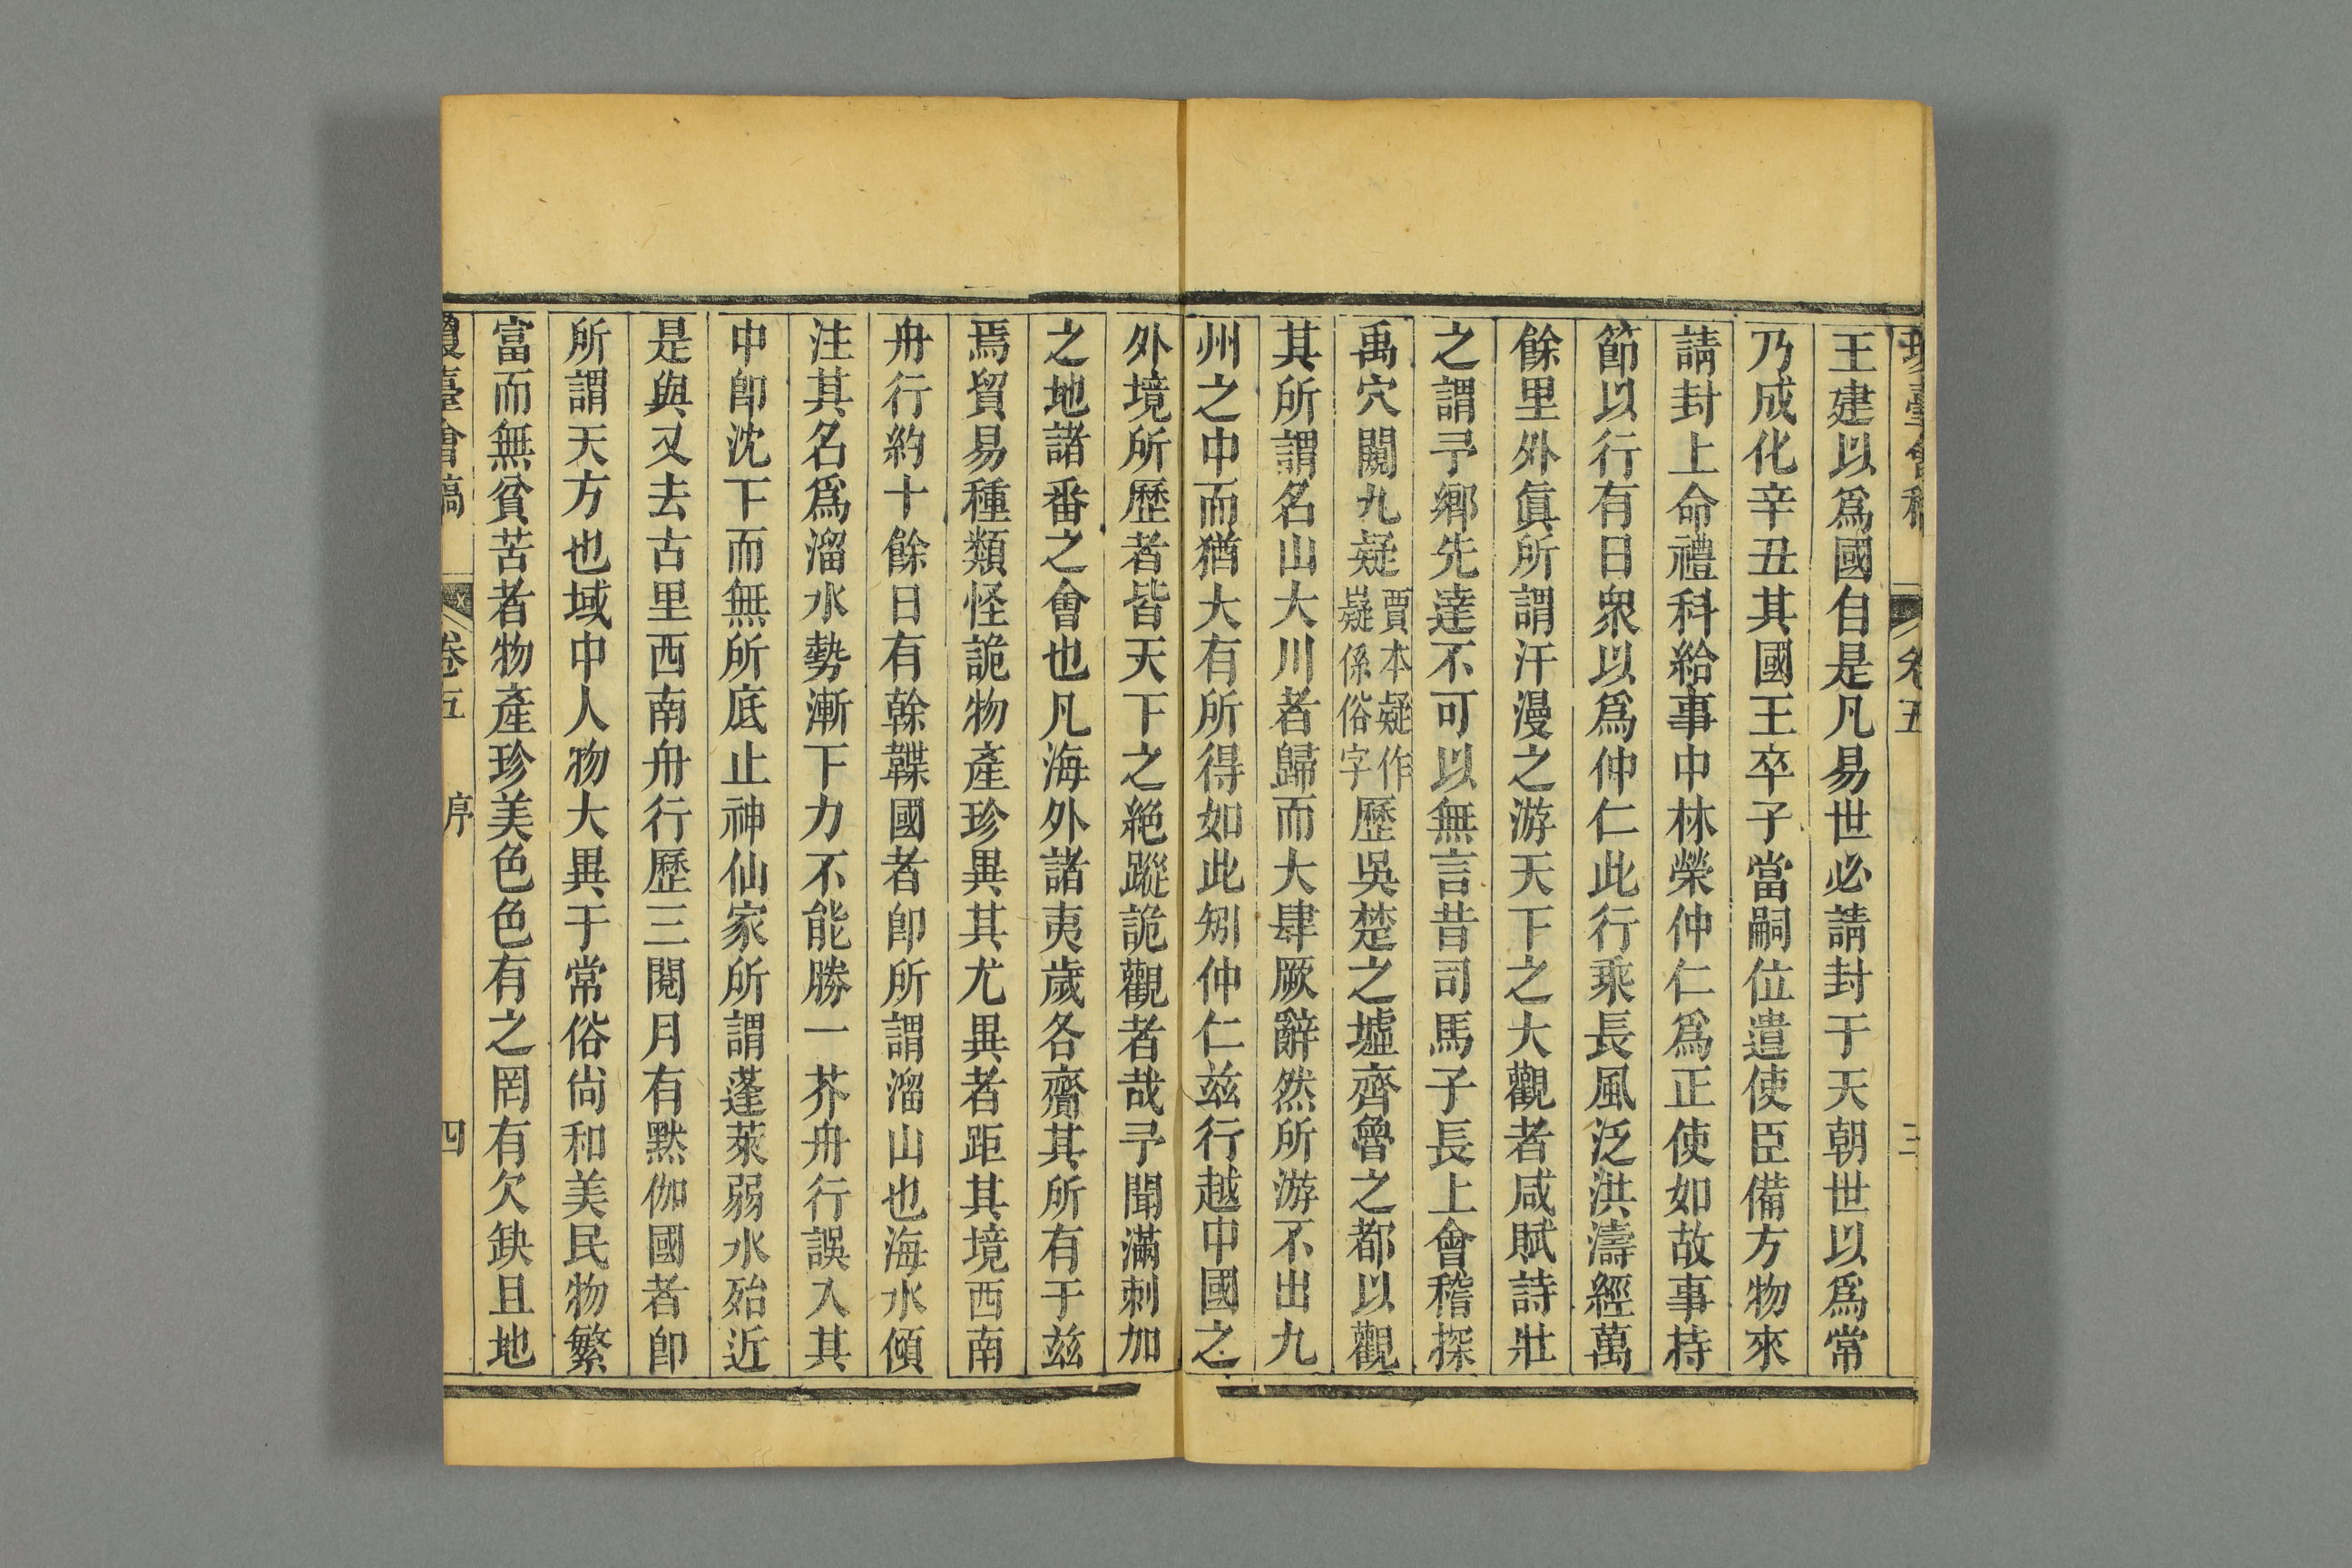 瓊臺會稿 卷五 三
王建以爲國自是凡易世必請封于天朝世以爲常
乃成化辛丑其國王卒子當嗣位遣使臣備方物來
請封上命禮科給事中林榮仲仁爲正使如故事持
節以行有日衆以爲仲仁此行乘長風泛洪濤經萬
餘里外眞所謂汗漫之游天下之大觀者咸賦詩壯
之謂予鄉先達不可以無言昔司馬子長上會稽探
禹穴闚九疑賈本疑作嶷係俗字歷吳楚之墟齊魯之都以觀
其所謂名山大川者歸而大肆厥辭然所游不出九
州之中而猶大有所得如此矧仲仁兹行越中國之
外境所歷者皆天下之絶蹤詭觀者哉予聞滿剌加
之地諸番之會也凡海外諸夷歲各齎其所有于兹
焉貿易種類怪詭物產珍異其尤異者距其境西南
舟行約十餘日有榦韘國者卽所謂溜山也海水傾
注其名爲溜水勢漸下力不能勝一芥舟行誤入其
中卽沈下而無所底止神仙家所謂蓬萊弱水殆近
是與又去古里西南舟行歷三閱月有默伽國者卽
所謂天方也域中人物大異于常俗尙和美民物繁
富而無貧苦者物產珍美色色有之罔有欠缺且地
瓊臺會稿 卷五 序 四